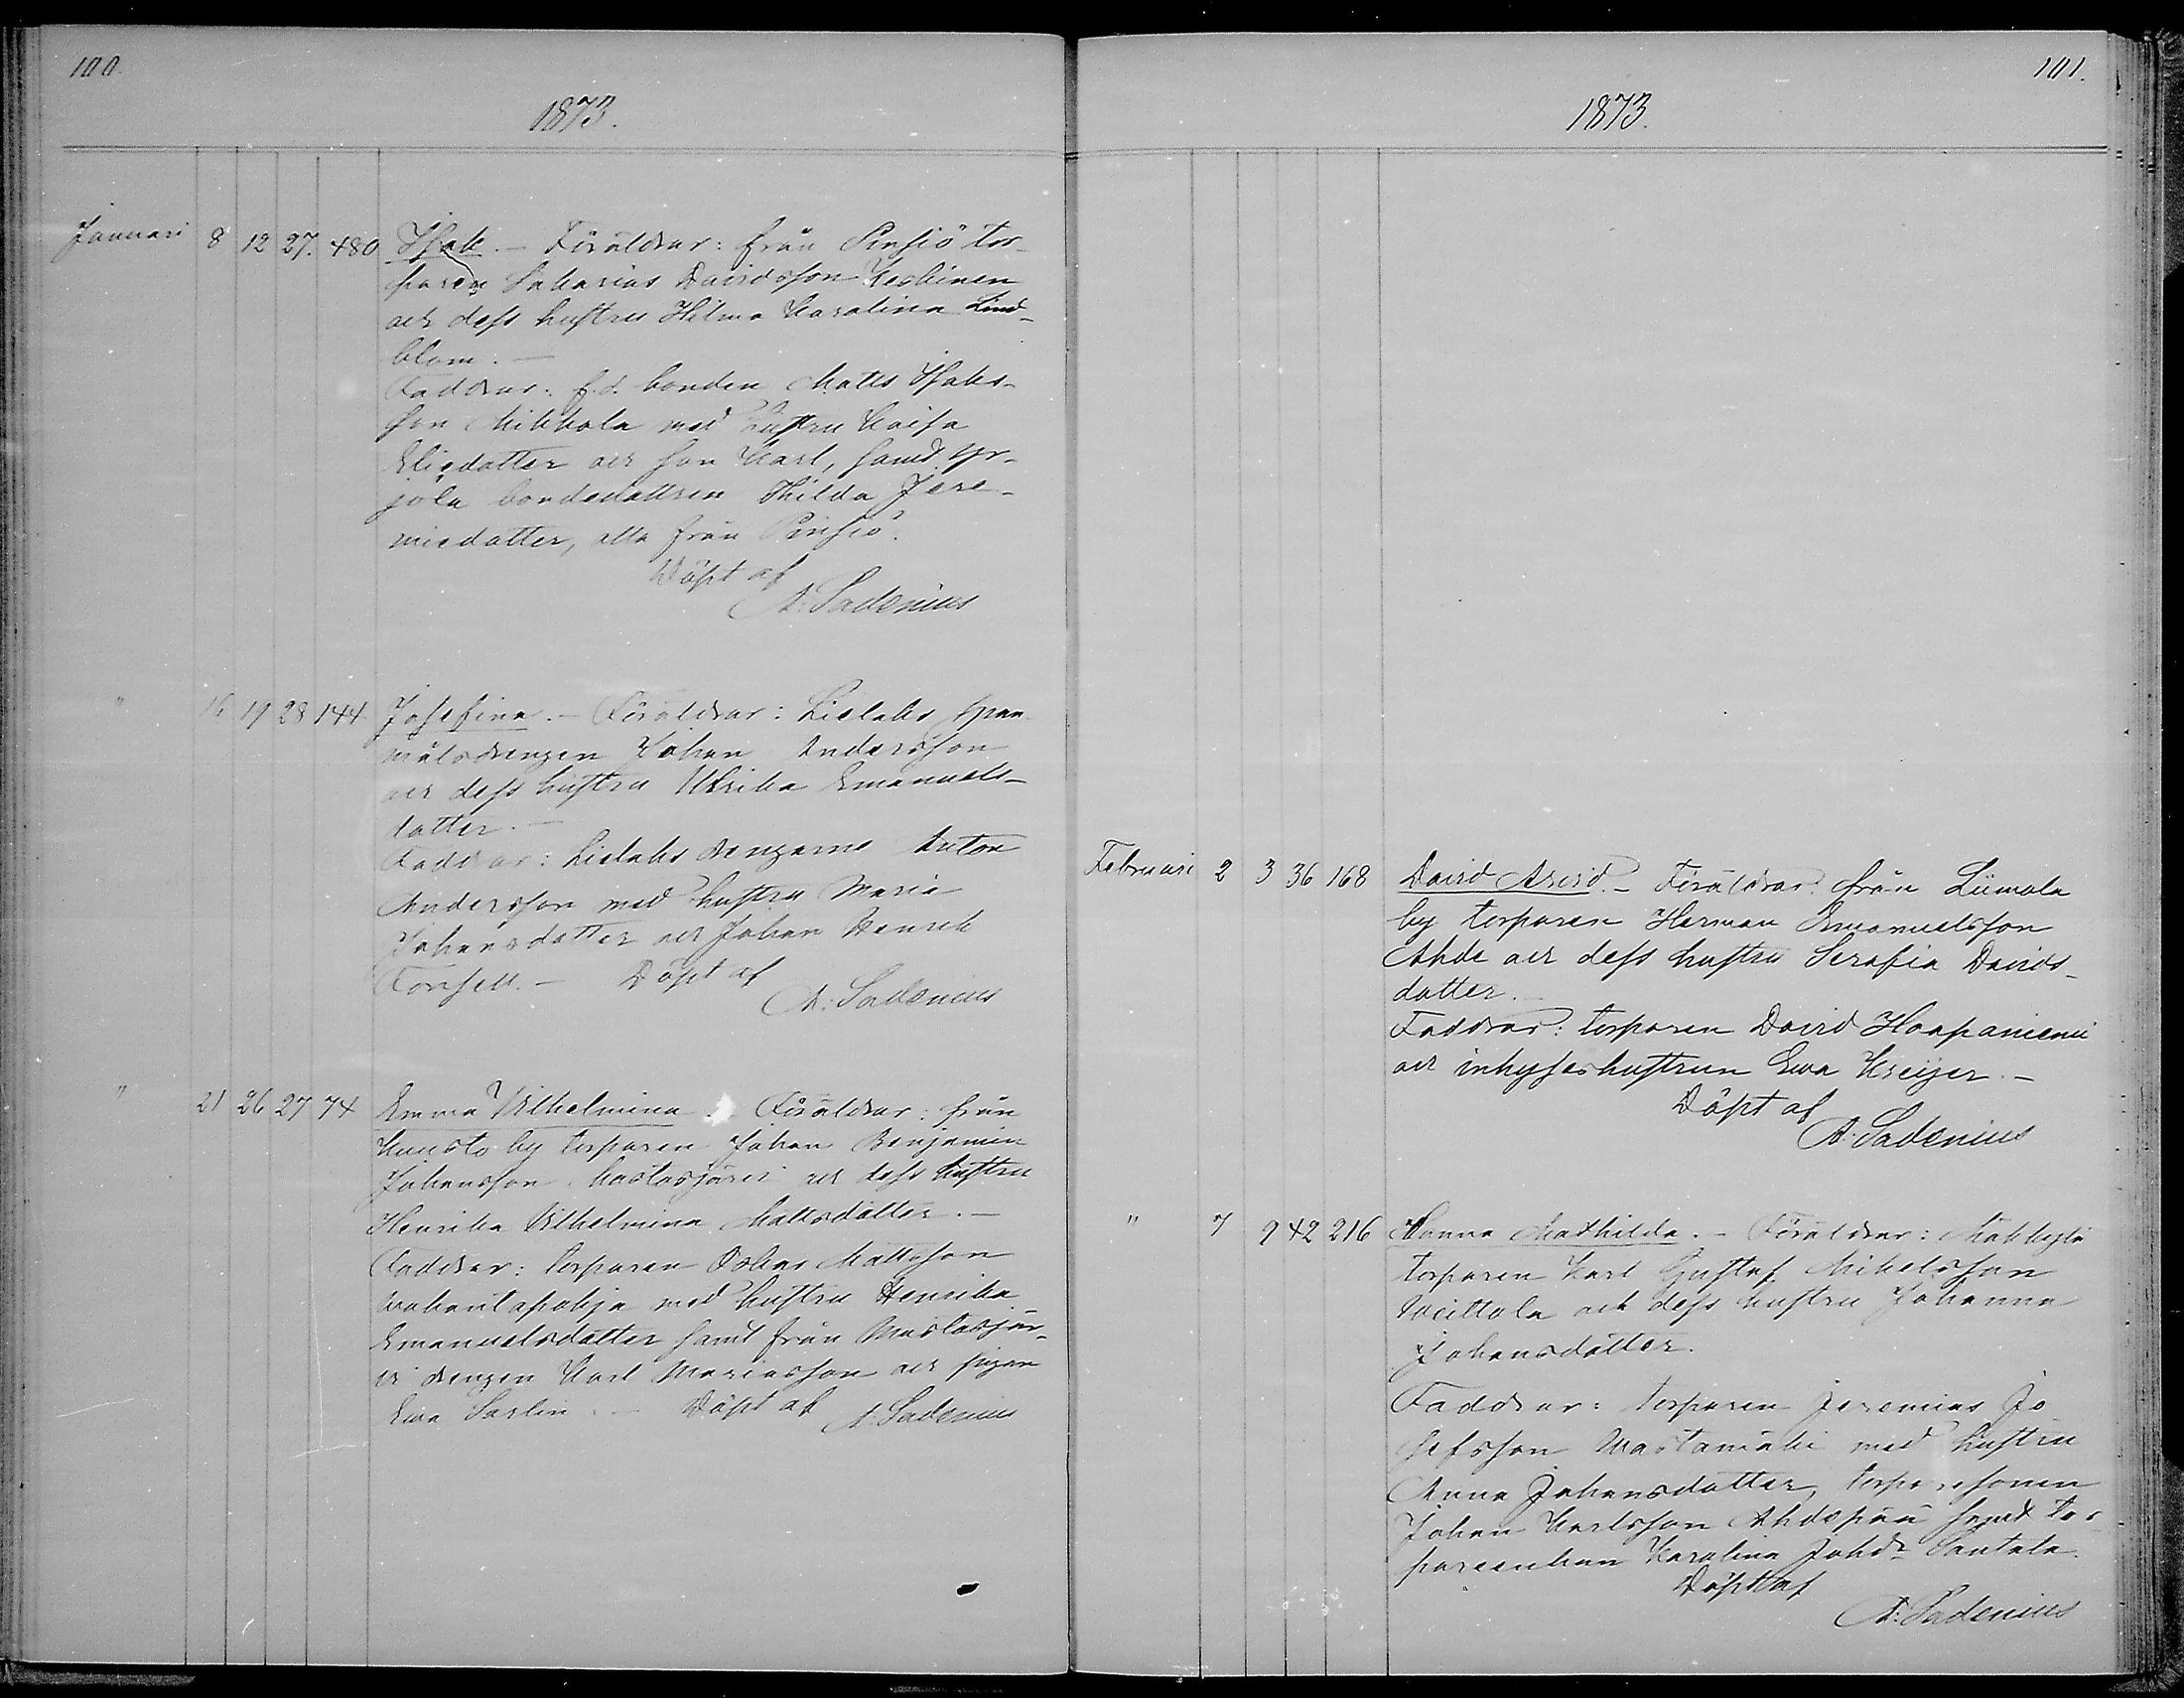 100.
1873.
Januari 8 12 27. 480 Isak. – Föräldrar: från Pinsiö tor-
paren Sakarias Davidsson Keskinen
och dess hustru Hilma Karolina Lind-
blom. –
Faddrar: f.d. bonden Matts Isaks-
son Mikkola med hustru Kaisa
Eliedotter och son Karl, samt Yr-
jölä bondedottren Hilda Jere-
miedotter, alla från Pinsiö.
Döpt af
A. Sadenius
" 16 19 28 144 Josefina. – Föräldrar: Lielaks span-
målsdrengen Johan Andersson
och dess hustru Ulrika Emanuels-
dotter. –
Faddrar: Lielaks drengarne Anton
Andersson med hustru Maria
Johansdotter och Johan Henrik
Forsell. – Döpt af
A. Sadenius
" 21 26 27 74 Emma Vilhelmina. – Föräldrar: från
by torparen Johan Benjamin
Johansson Mustasjärvi och dess hustru
Henrika Vilhelmina Mattsdotter. –
Faddrar: torparen Oskar Mattsson
med hustru Henrika
Emanuelsdotter samt från Mustasjär-
vi drengen Karl Mariasson och pigan
Ewa Sarlin. – Döpt af A. Sadenius
101.
1873.
Februari 2 3 36 168 David Arvid. – Föräldrar: från Liimola
by torparen Herman Emanuelsson
Ahde och dess hustru Serafia Davids-
dotter. –
Faddrar: torparen David Haapaniemi
och inhyseshustrun Ewa Kreijer. –
Döpt af
A. Sadenius
" 7 9 42 216 Hanna Mathilda. – Föräldrar: Mäkkylä
torparen Karl Gustaf Mikelsson
Wiittala och dess hustru Johanna
Johansdotter.
Faddrar: torparen Jeremias Jo
sefsson Wastamäki med hustru
Anna Johansdotter, torparesonen
Johan Karlsson Ahdepää samt tor-
pareenkan Karolina Johdr Santala.
Döpt af
A. Sadenius